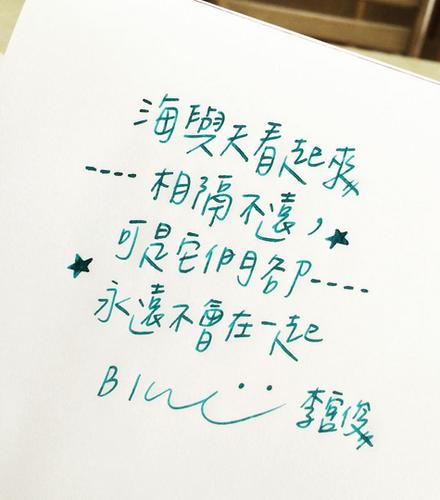 海與天看起來
---- 相隔不遠，
可是它們卻----
永遠不會在一起
Blue 李宮俊